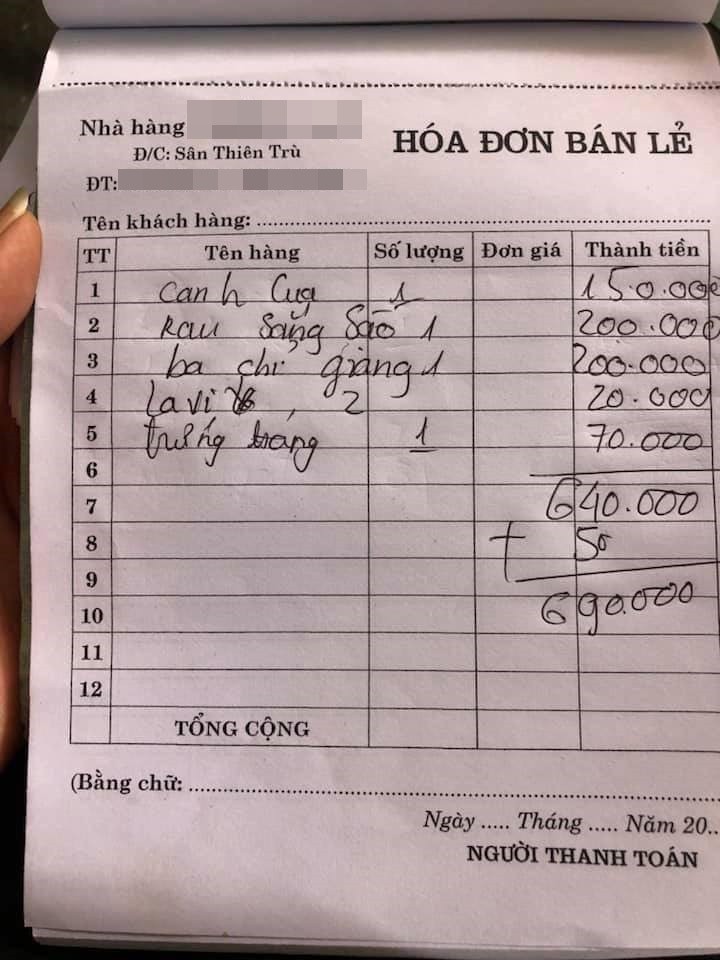 Nhà hàng
HÓA ĐƠN BÁN LẺ
Đ/C: Sân Thiên Trù
ĐT:
Tên khách hàng: ........................
TT Tên hàng Số lượng Đơn giá Thành tiền
1 canh Cua 1 150.000
2 Rau Sắng Sào 1 200.000
3 ba chỉ giàng 1 200.000
4 Lavi , 2 20.000
5 trứng tráng 1 70.000
6
7 640.000
8 + 50
9
10 690.000
11
12
TỔNG CỘNG
(Bằng chữ: ........................
Ngày ..... Tháng ..... Năm 20..
NGƯỜI THANH TOÁN